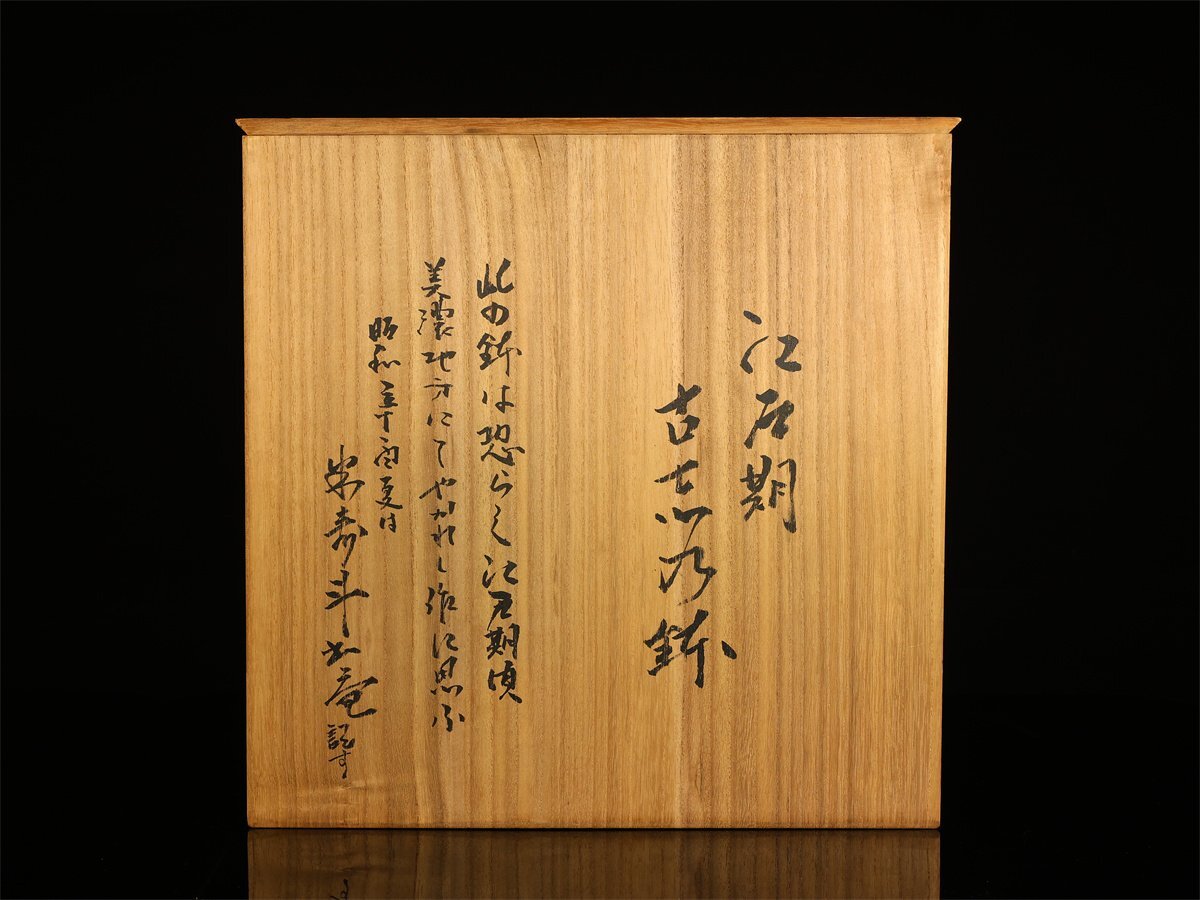 江戸期
古志乃鉢
此の鉢は恐らく江戸期頃
美濃地方にてやかれし作に思ふ
昭和五十 夏日
寿斗 庵 記す